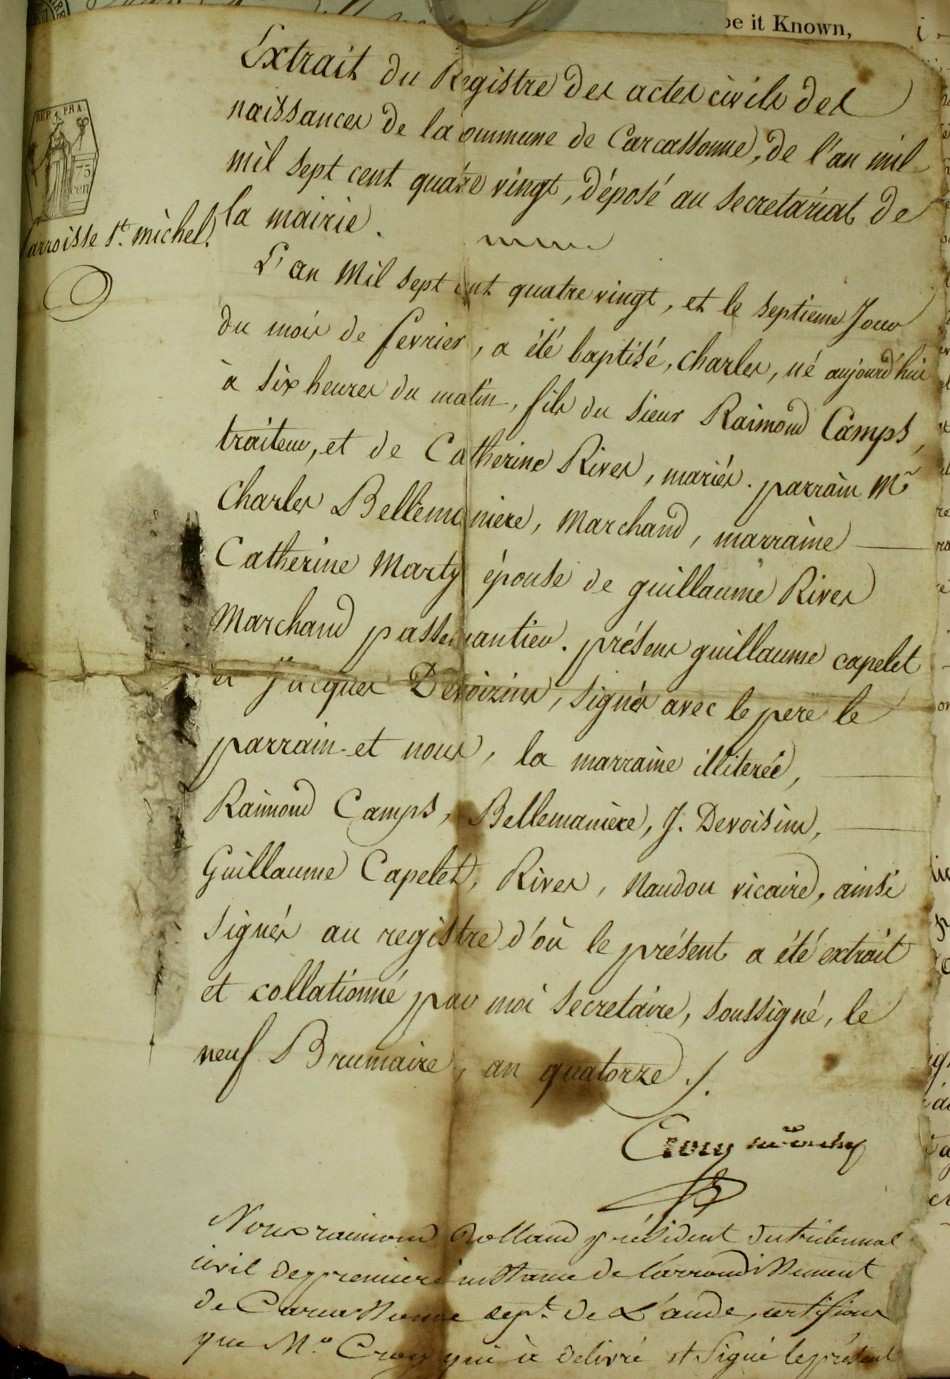 be it Known,
Extrait du Registre des actes civils des
naissances de la commune de Carcassonne, de l'an mil
mil sept cent quatre vingt, déposé au secretariat de
la mairie.
REP. FRA.
75
cen
parroisse St. michel.
L'an mil sept cent quatre vingt, et le septieme Jour
du mois de fevrier, a été baptisé, charles, né aujourd'hui
à six heures du matin, fils du sieur Raimond Camps,
traiteur, et de Catherine Rives, mariés. parrain Mr
Charles Bellemaniere, Marchand, marraine
Catherine Marty épouse de guillaume Rives
Marchand passementier. présens guillaume capelet
et Jacques Devoizins, signés avec le pere le
parrain et nous, la marraine illiterée,
Raimond Camps, Bellemaniere, J. Devoisins,
Guillaume Capelet, Rives, Naudou vicaire, ainsi
signés au registre d'où le présent a été extrait
et collationné par moi secretaire, soussigné, le
neuf Brumaire, an quatorze ./.
Nous raimond Rolland président du tribunal
civil de premiere instance de l'arrondissement
de Carcassonne dept. de L'aude, certifions
que Mr. Cros qui a delivré et Signé le présent